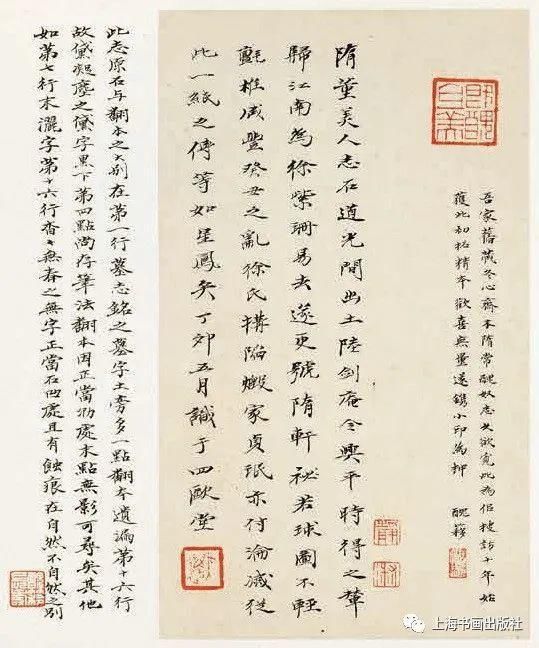 既醜且美
吾家舊藏冬心齋本隋常醜奴志久欲覓此為侶搜訪十年始
獲此初拓精本歡喜無量遂鐫小印為押 醜簃
隋董美人志石道光間出土陸劍庵令興平時得之輦
歸江南為徐紫珊易去遂更號隋軒祕若球圖不輕
氈椎咸豐癸丑之亂徐氏搆陷燬家貞珉亦付淪滅從
此一紙之傳等如星鳳矣丁卯五月識于四歐堂
此志原石與翻本之大別在第一行墓志銘之墓字土旁多一點翻本遺漏第十六行
故黛凝塵之黛字黑下第四點尚存筆法翻本因正當泐處末點無影可尋矣其他
如第七行末灑字第十六行杳々無春之無字正當石凹處且有蝕痕在自然不自然之別
上海书画出版社